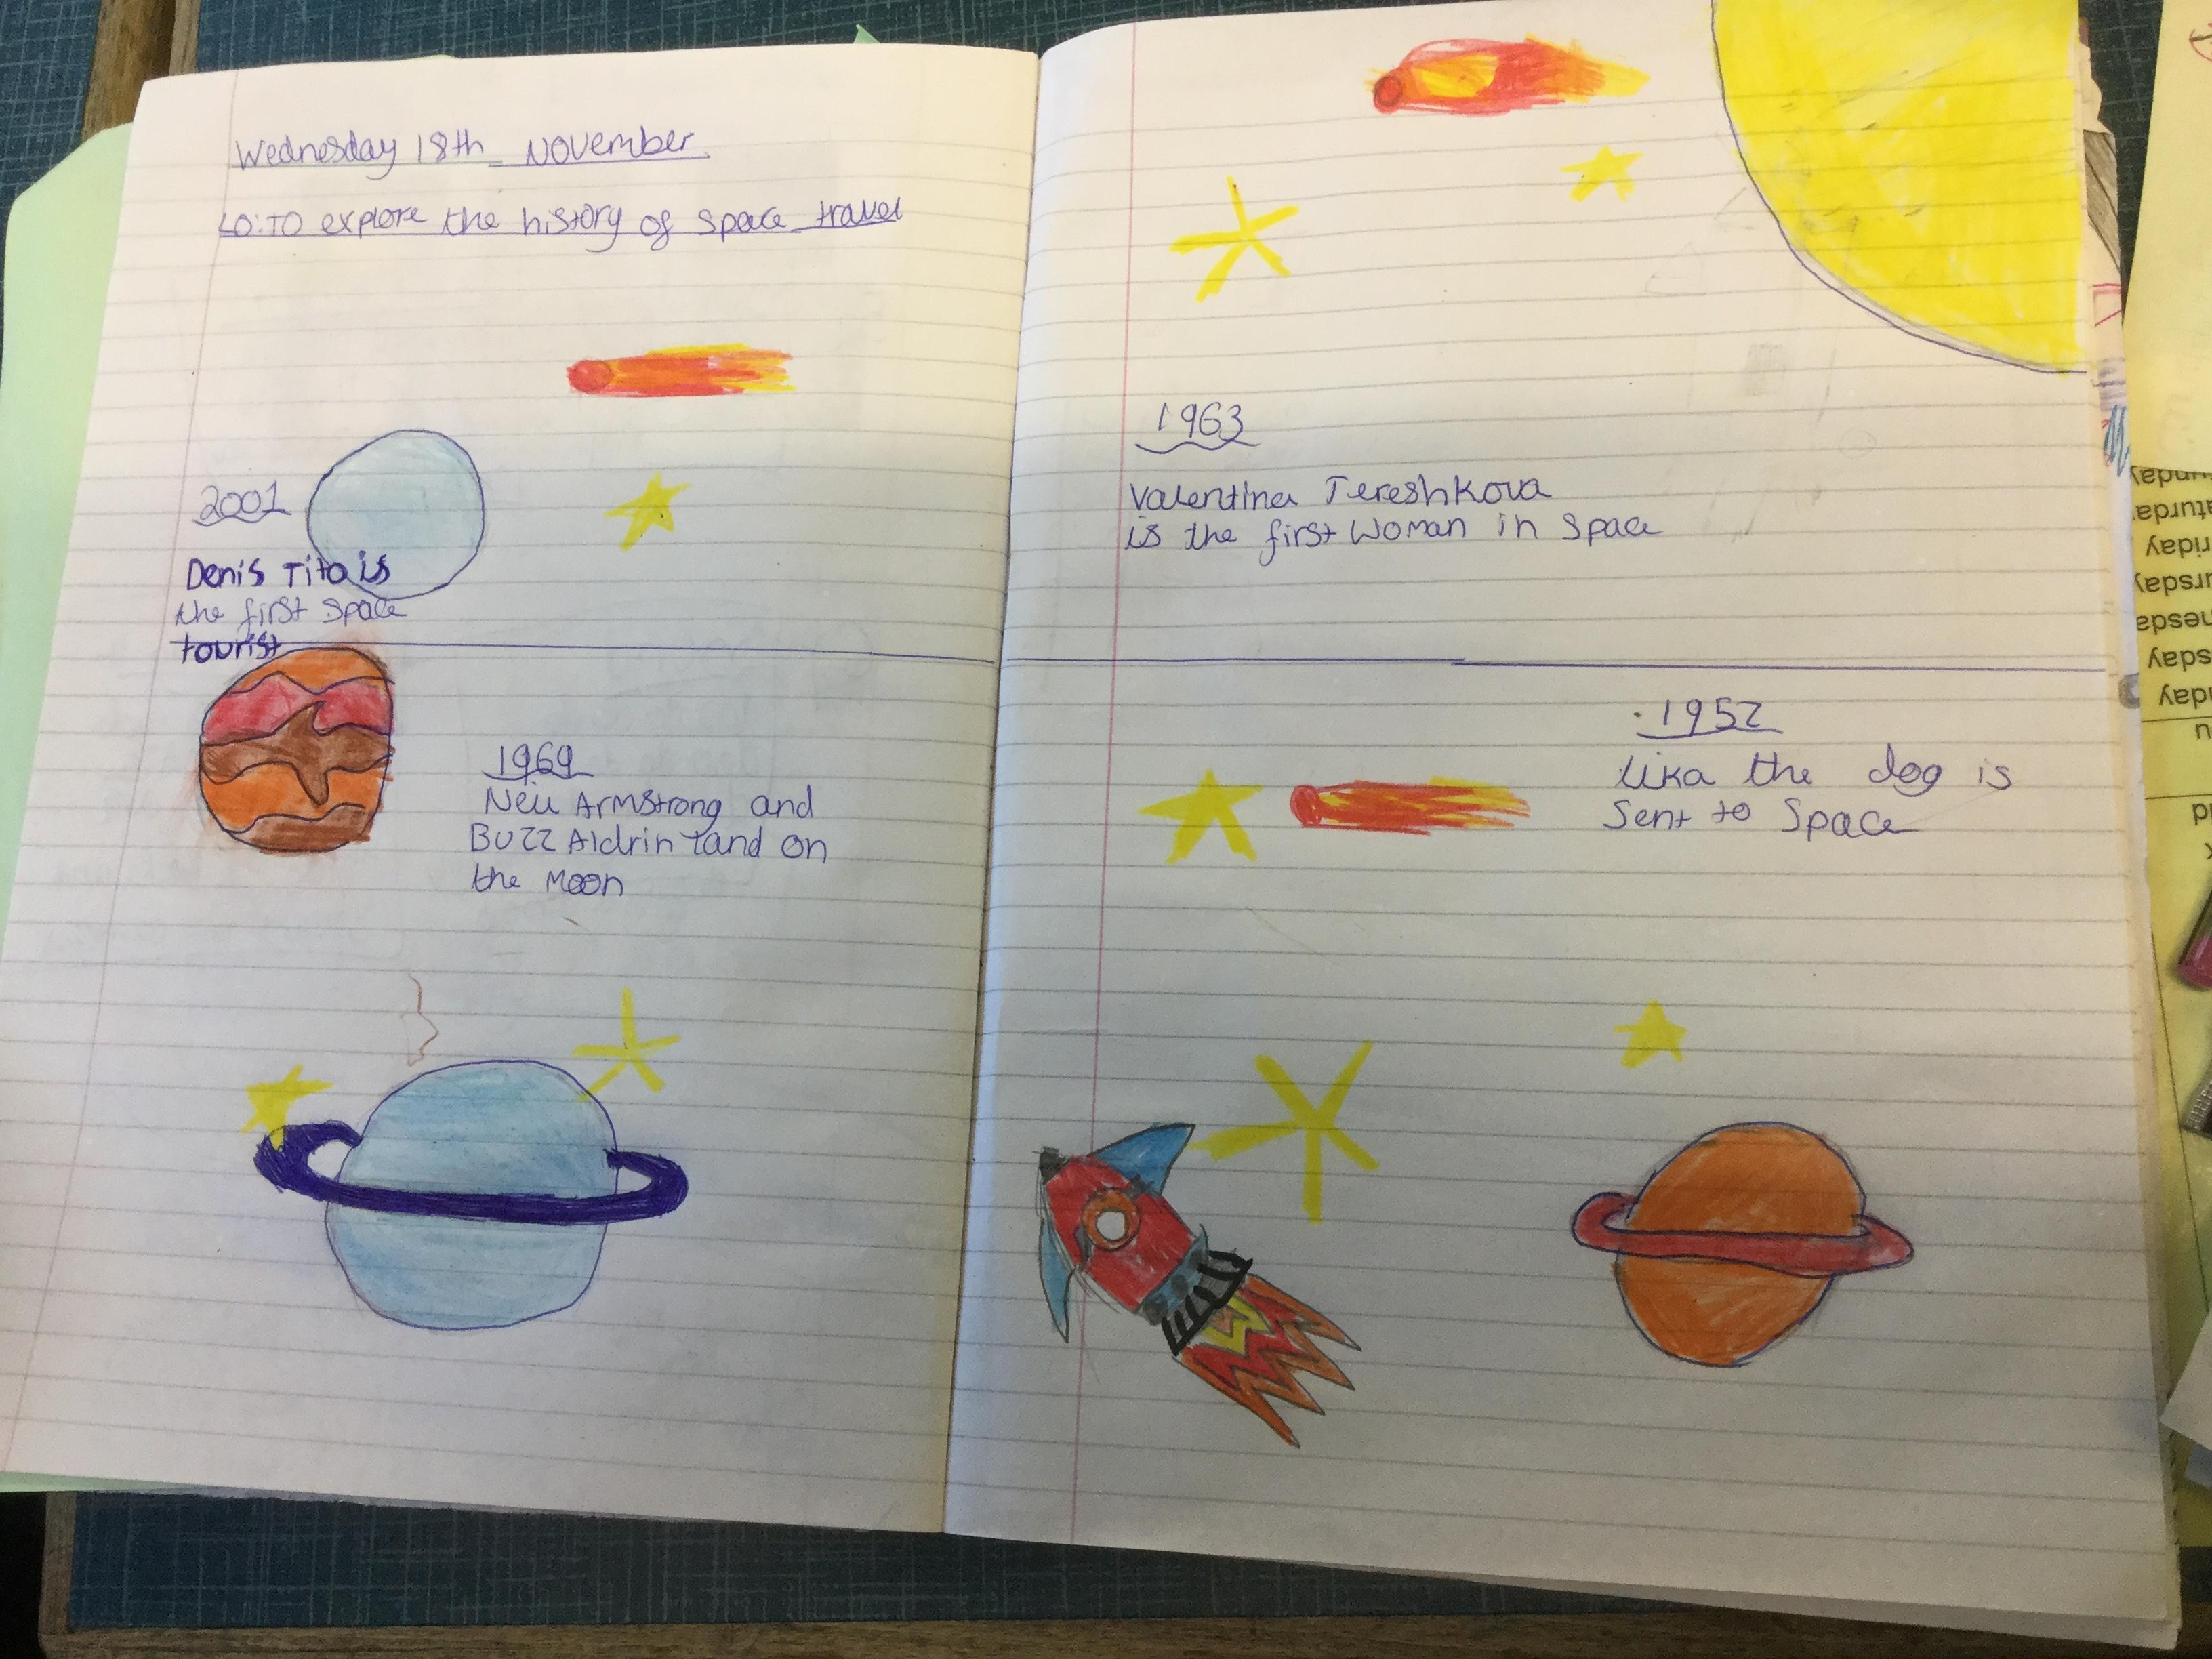 Wednesday 18th November
LO: TO explore the history of space travel
2001
Denis Tito is
the first space
tourist
1969
Neil Armstrong and
Buzz Aldrin land on
the Moon
1963
Valentina Tereshkova
is the first Woman in Space
1952
Lika the dog is
Sent to Space